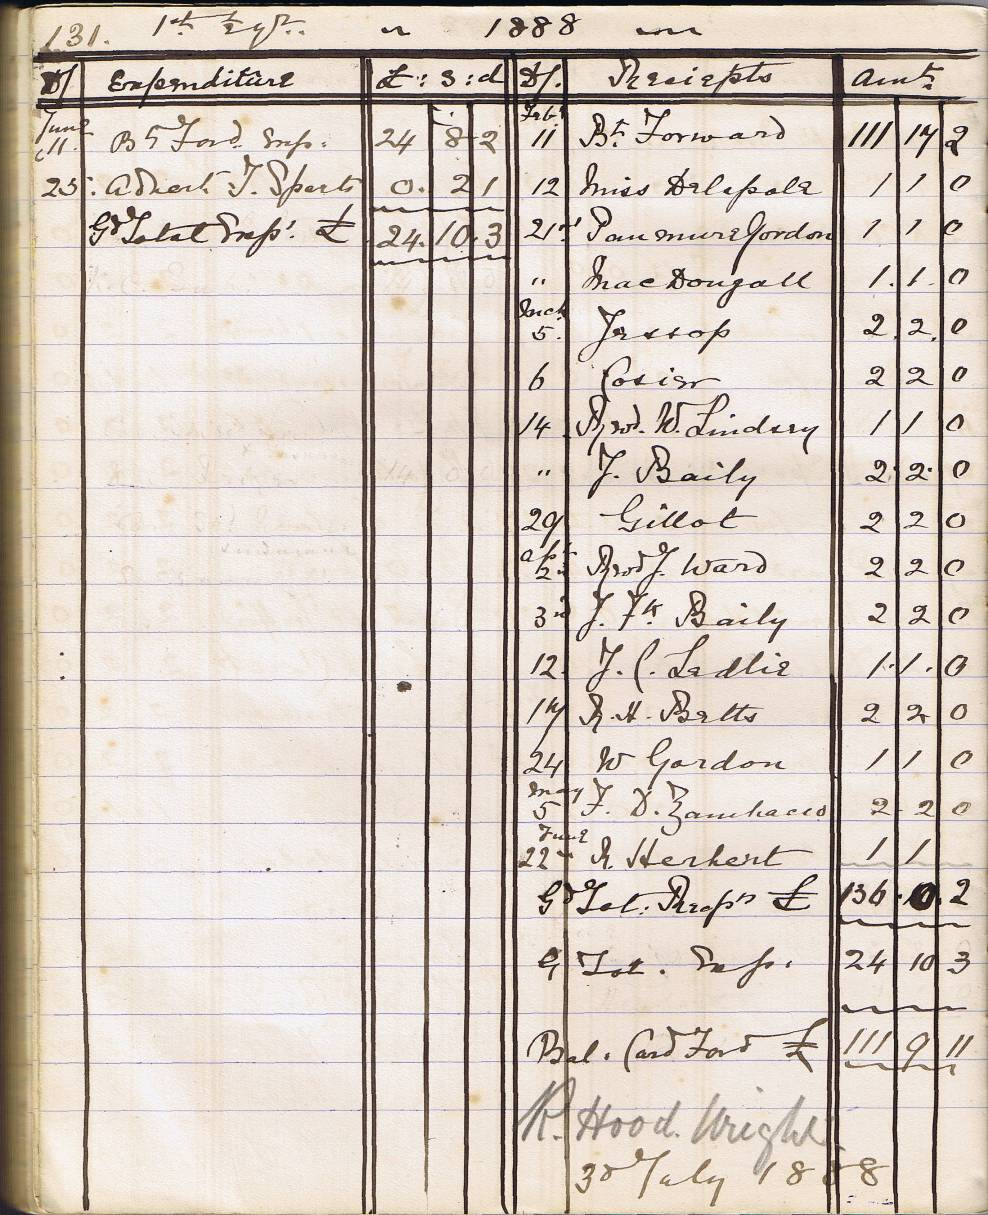 131. 1st 1888
D/ Expenditure £ : s : d D/. Receipts Amt
June 11. Bt Ford. Exp: 24 8 2
25. Advert. T. Sparts 0. 2 1
Gd Total Exps: £ 24. 10. 3
Feby 11 Bt. Forward 111 17 2
12 Miss Delapole 1 1 0
21st Panmure Gordon 1 1 0
" MacDougall 1. 1. 0
Mch 5. Jessop 2. 2. 0
6 Cosier 2 2 0
14. W. Lindsey 1 1 0
" J. Baily 2. 2. 0
29 Gillot 2 2 0
Apl 2nd J. Ward 2 2 0
3rd J. Fk Baily 2 2 0
12. J. C. Ledlie 1. 1. 0
17 R. H. Betts 2 2 0
24 W Gordon 1 1 0
May 5 F. D. Zambacco 2. 2 0
June 22nd R. Herbert 1 1
Gd Tot: Recpts £ 136. 10. 2
G Tot. Exp. 24 10 3
Bal. Card Ford £ 111 9 11
R. Hood. Wright.
3d July 1888